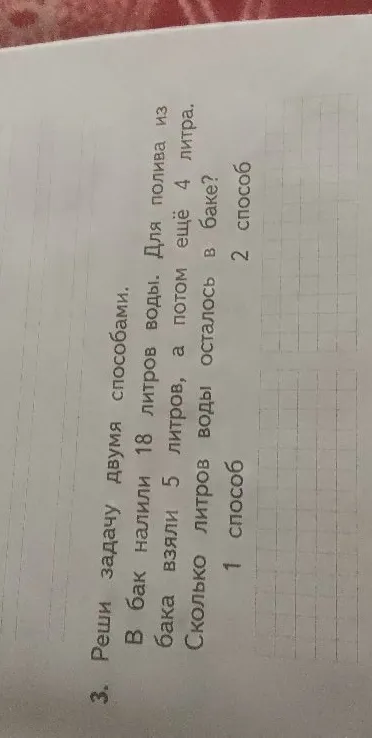 3. Реши задачу двумя способами.
В бак налили 18 литров воды. Для полива из
бака взяли 5 литров, а потом ещё 4 литра.
Сколько литров воды осталось в баке?
1 способ 2 способ